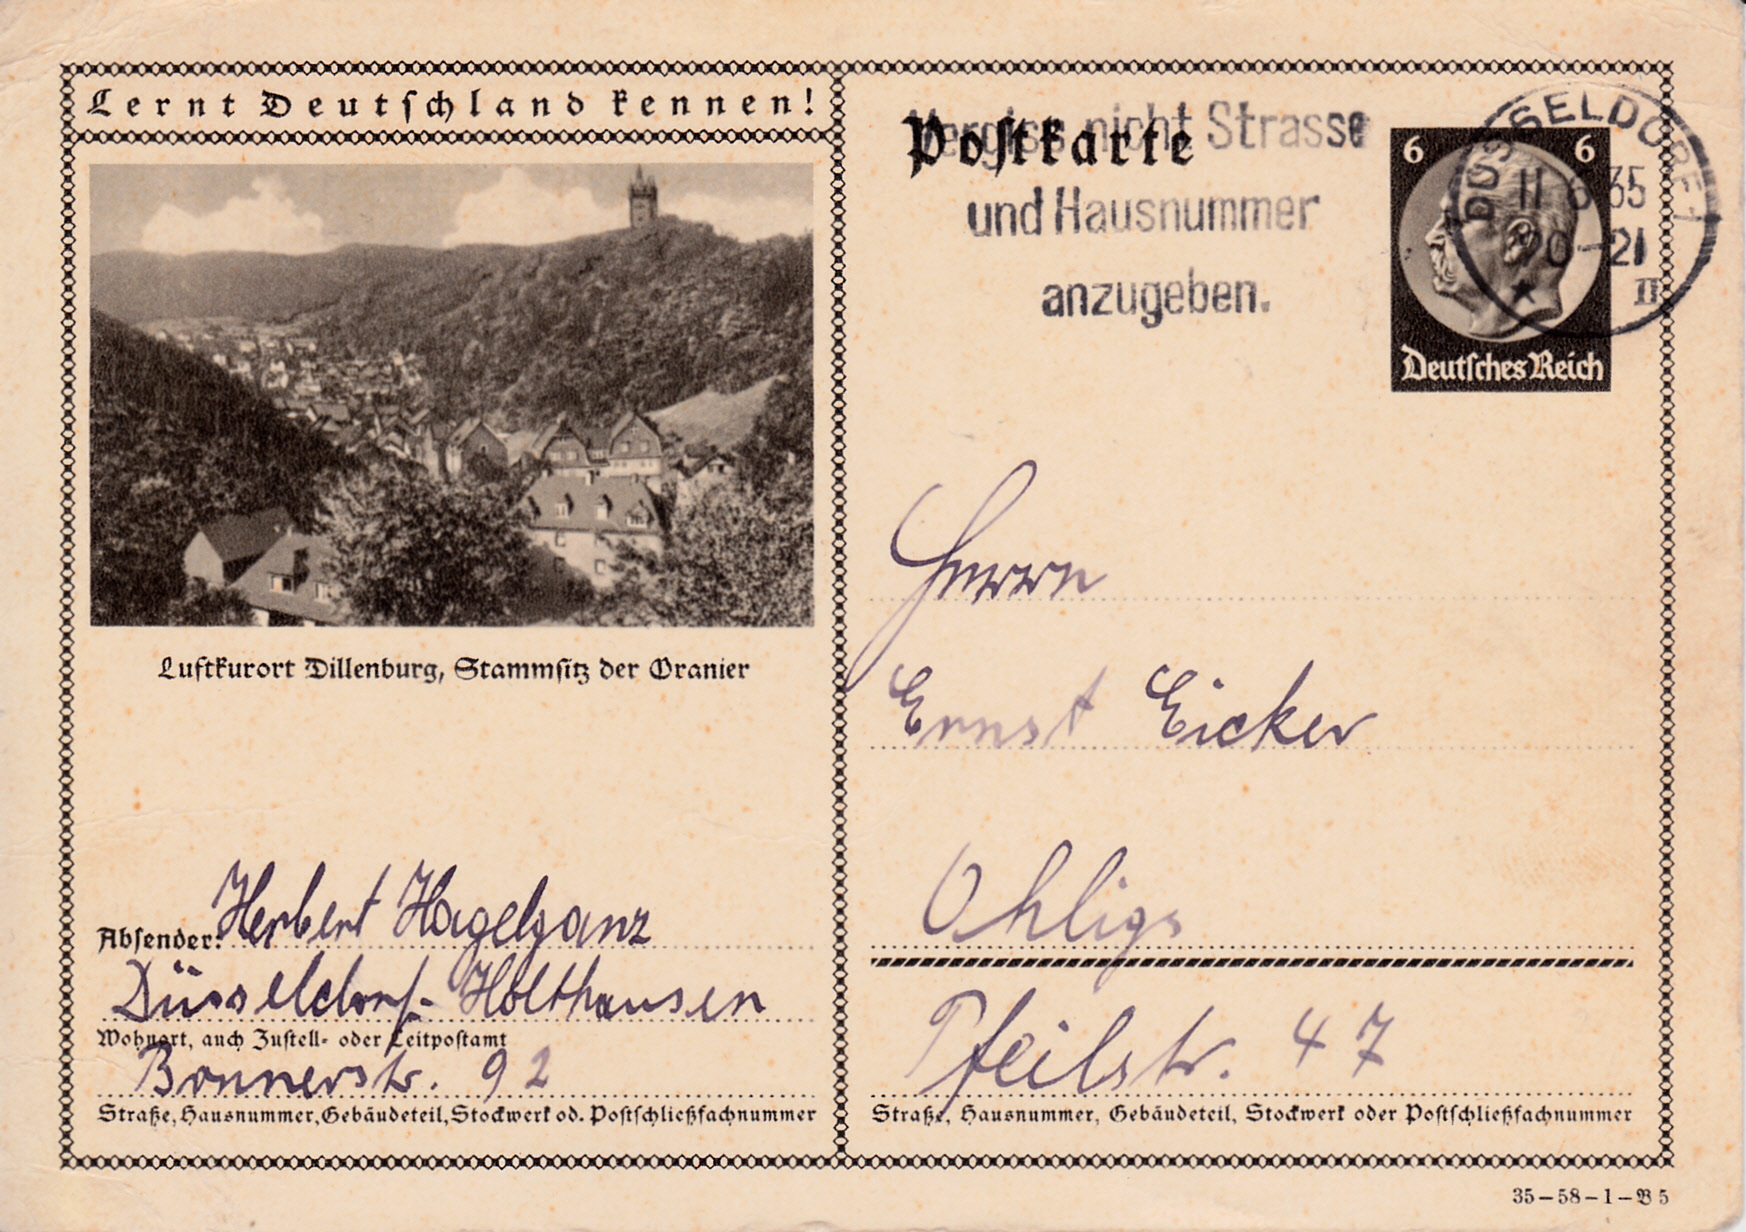 Lernt Deutschland kennen!
Luftkurort Dillenburg, Stammsitz der Oranier
Absender: Herbert Hagelganz
Düsseldorf-Holthausen
Wohnort, auch Zustell- oder Leitpostamt
Bonnerstr. 92
Straße, Hausnummer, Gebäudeteil, Stockwerk od. Postschließfachnummer
Postkarte
Vergiss nicht Strasse
und Hausnummer
anzugeben.
6 6
Deutsches Reich
DÜSSELDORF 1
11 6 35
20-21
II
Herrn
Ernst Eicker
Ohligs
Pfeilstr. 47
Straße, Hausnummer, Gebäudeteil, Stockwerk oder Postschließfachnummer
35-58-1-B5